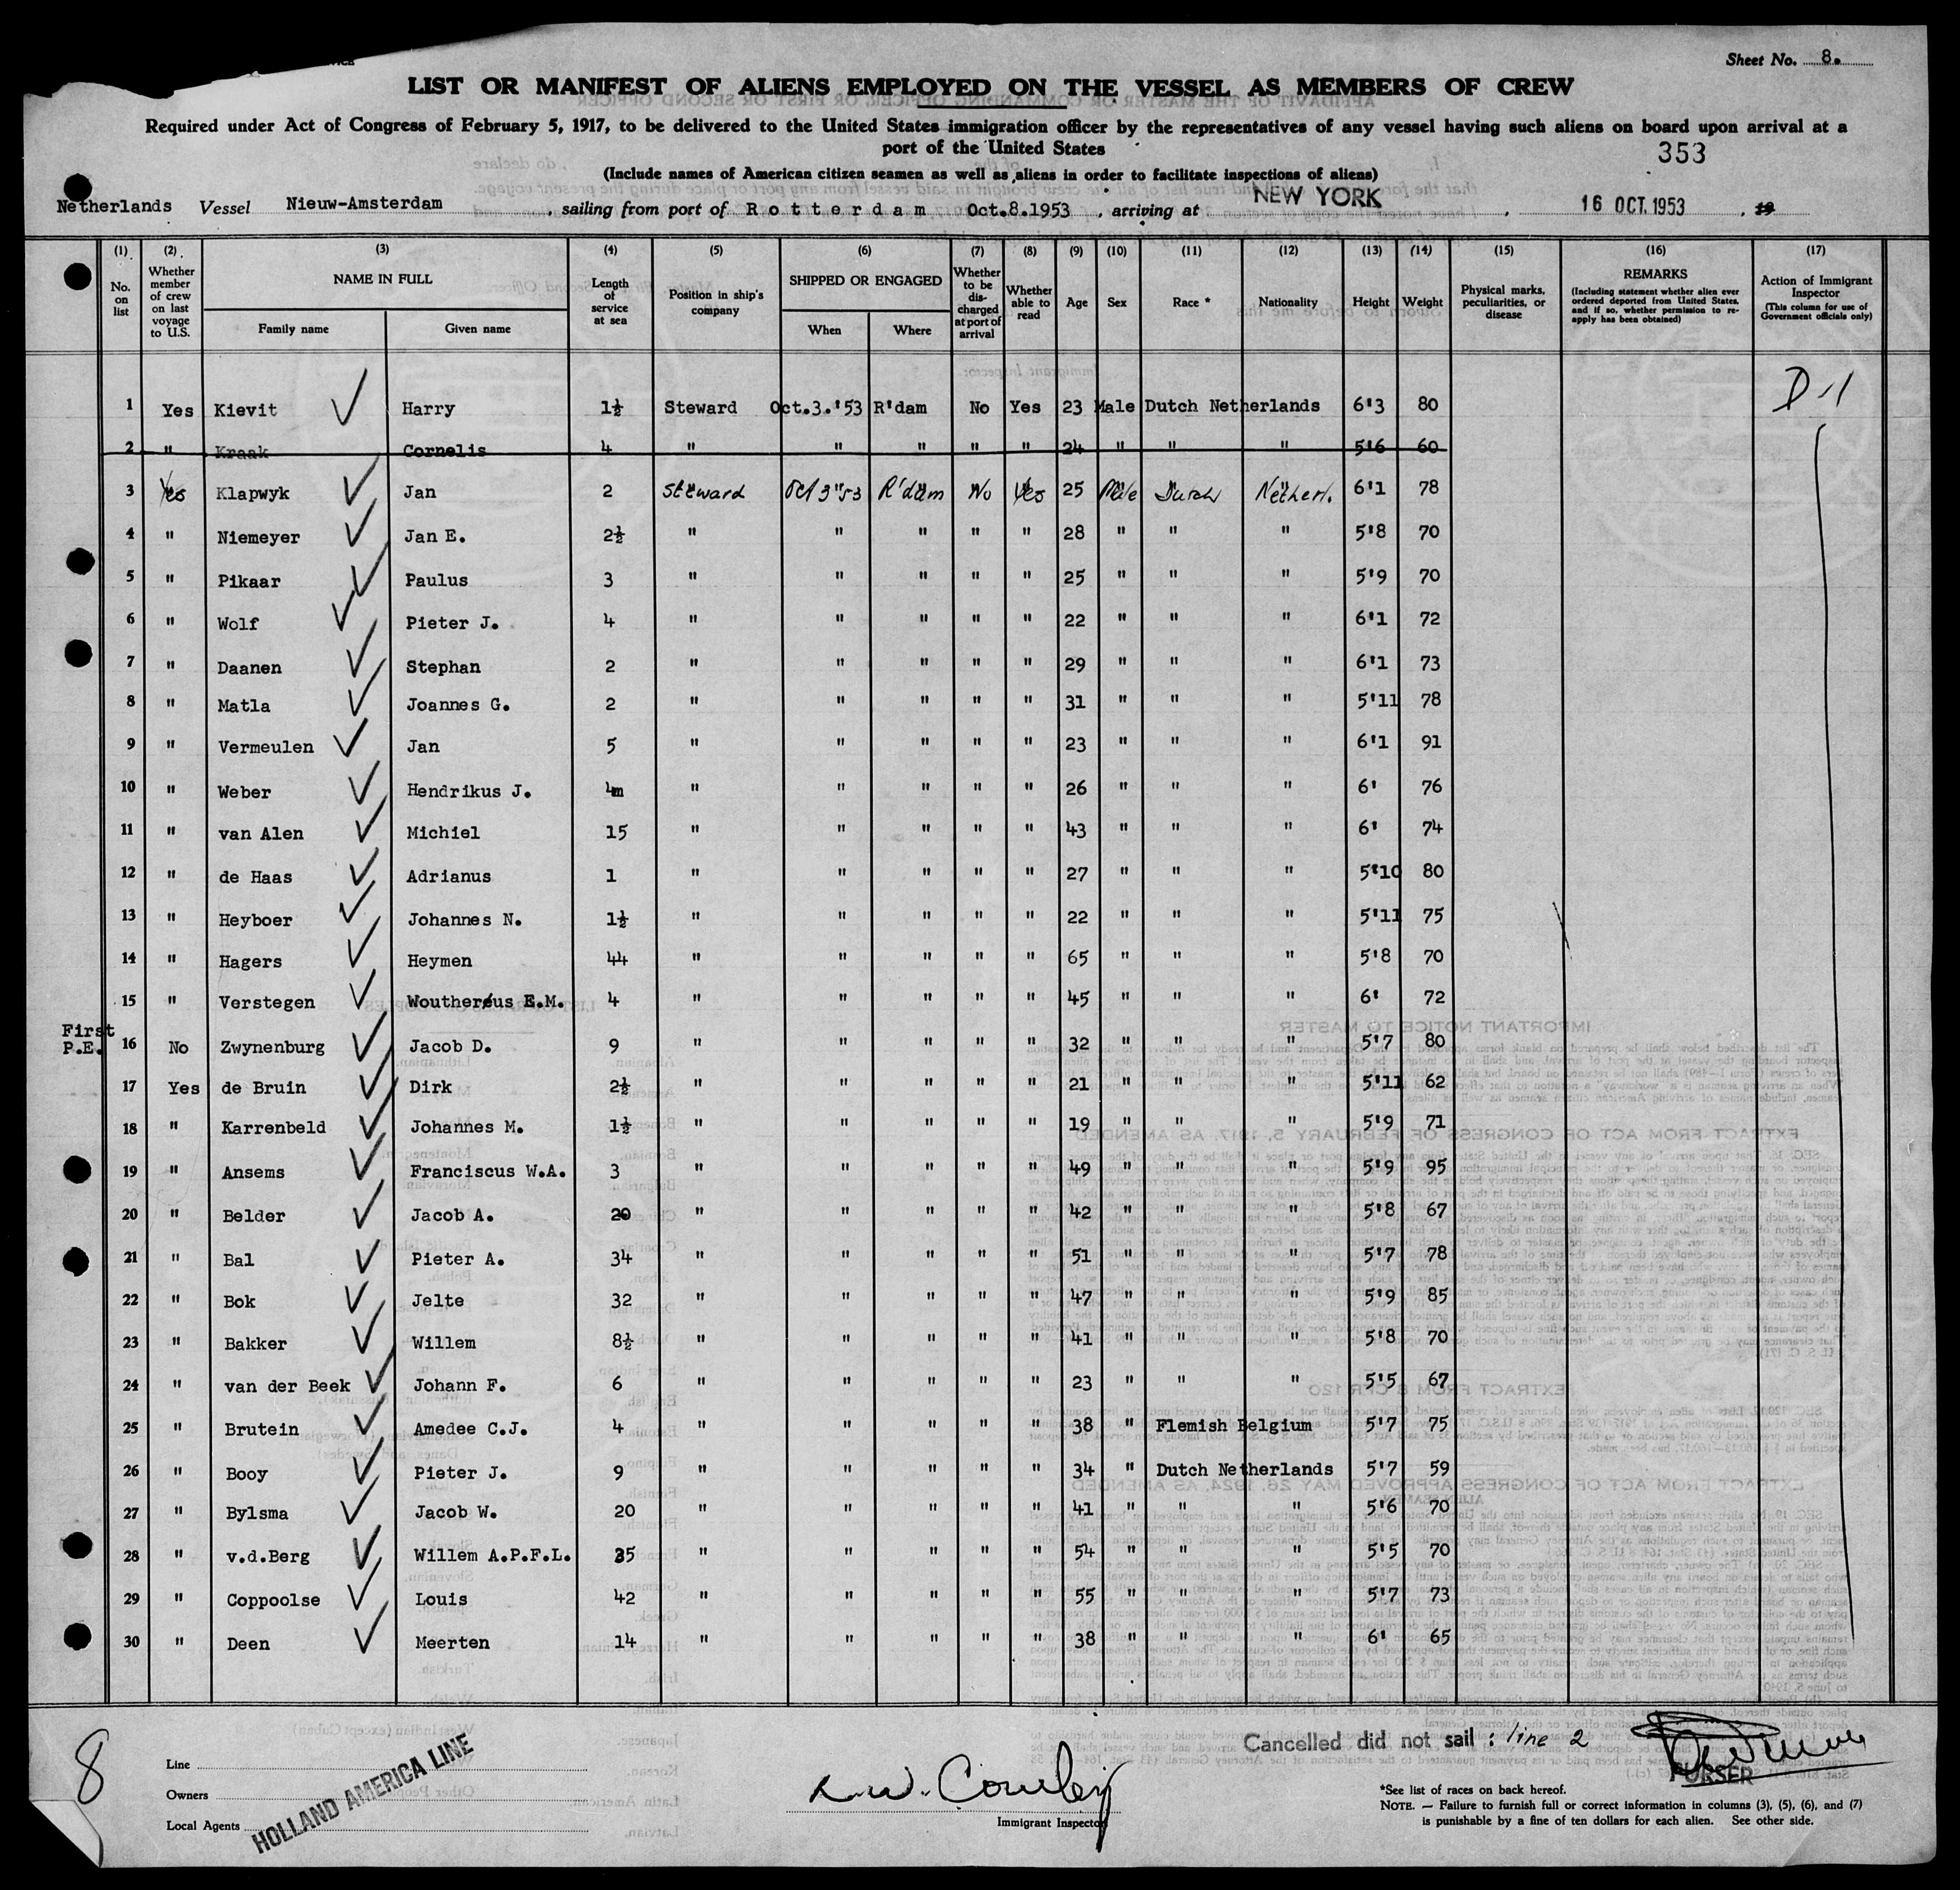 Sheet No. 8.
LIST OR MANIFEST OF ALIENS EMPLOYED ON THE VESSEL AS MEMBERS OF CREW
Required under Act of Congress of February 5, 1917, to be delivered to the United States immigration officer by the representatives of any vessel having such aliens on board upon arrival at a
port of the United States
353
(Include names of American citizen seamen as well as aliens in order to facilitate inspections of aliens)
Netherlands Vessel Nieuw-Amsterdam, sailing from port of Rotterdam Oct.8.1953, arriving at NEW YORK, 16 OCT. 1953, 19
(1) No. on list
(2) Whether member of crew on last voyage to U.S.
(3) NAME IN FULL Family name Given name
(4) Length of service at sea
(5) Position in ship's company
(6) SHIPPED OR ENGAGED When Where
(7) Whether to be discharged at port of arrival
(8) Whether able to read
(9) Age
(10) Sex
(11) Race *
(12) Nationality
(13) Height
(14) Weight
(15) Physical marks, peculiarities, or disease
(16) REMARKS (Including statement whether alien ever ordered deported from United States, and if so, whether permission to re-apply has been obtained)
(17) Action of Immigrant Inspector (This column for use of Government officials only)
1 Yes Kievit Harry 1½ Steward Oct.3.'53 R'dam No Yes 23 Male Dutch Netherlands 6'3 80 D-1
2 " Kraak Cornelis 4 " " " " " 24 " " " 5'6 60
3 Yes Klapwyk Jan 2 Steward Oct 3 '53 R'dam No Yes 25 Male Dutch Netherl. 6'1 78
4 " Niemeyer Jan E. 2½ " " " " " 28 " " " 5'8 70
5 " Pikaar Paulus 3 " " " " " 25 " " " 5'9 70
6 " Wolf Pieter J. 4 " " " " " 22 " " " 6'1 72
7 " Daanen Stephan 2 " " " " " 29 " " " 6'1 73
8 " Matla Joannes G. 2 " " " " " 31 " " " 5'11 78
9 " Vermeulen Jan 5 " " " " " 23 " " " 6'1 91
10 " Weber Hendrikus J. 4m " " " " " 26 " " " 6' 76
11 " van Alen Michiel 15 " " " " " 43 " " " 6' 74
12 " de Haas Adrianus 1 " " " " " 27 " " " 5'10 80
13 " Heyboer Johannes N. 1½ " " " " " 22 " " " 5'11 75
14 " Hagers Heymen 44 " " " " " 65 " " " 5'8 70
15 " Verstegen Woutherus E.M. 4 " " " " " 45 " " " 6' 72
First P.E. 16 No Zwynenburg Jacob D. 9 " " " " " 32 " " " 5'7 80
17 Yes de Bruin Dirk 2½ " " " " " 21 " " " 5'11 62
18 " Karrenbeld Johannes M. 1½ " " " " " 19 " " " 5'9 71
19 " Ansems Franciscus W.A. 3 " " " " " 49 " " " 5'9 95
20 " Belder Jacob A. 20 " " " " " 42 " " " 5'8 67
21 " Bal Pieter A. 34 " " " " " 51 " " " 5'7 78
22 " Bok Jelte 32 " " " " " 47 " " " 5'9 85
23 " Bakker Willem 8½ " " " " " 41 " " " 5'8 70
24 " van der Beek Johann F. 6 " " " " " 23 " " " 5'5 67
25 " Brutein Amedee C.J. 4 " " " " " 38 " Flemish Belgium 5'7 75
26 " Booy Pieter J. 9 " " " " " 34 " Dutch Netherlands 5'7 59
27 " Bylsma Jacob W. 20 " " " " " 41 " " " 5'6 70
28 " v.d.Berg Willem A.P.F.L. 35 " " " " " 54 " " " 5'5 70
29 " Coppoolse Louis 42 " " " " " 55 " " " 5'7 73
30 " Deen Meerten 14 " " " " " 38 " " " 6' 65
8
Cancelled did not sail : line 2
Line
Owners
Local Agents
HOLLAND AMERICA LINE
Immigrant Inspector
PURSER
*See list of races on back hereof.
NOTE. — Failure to furnish full or correct information in columns (3), (5), (6), and (7)
is punishable by a fine of ten dollars for each alien. See other side.